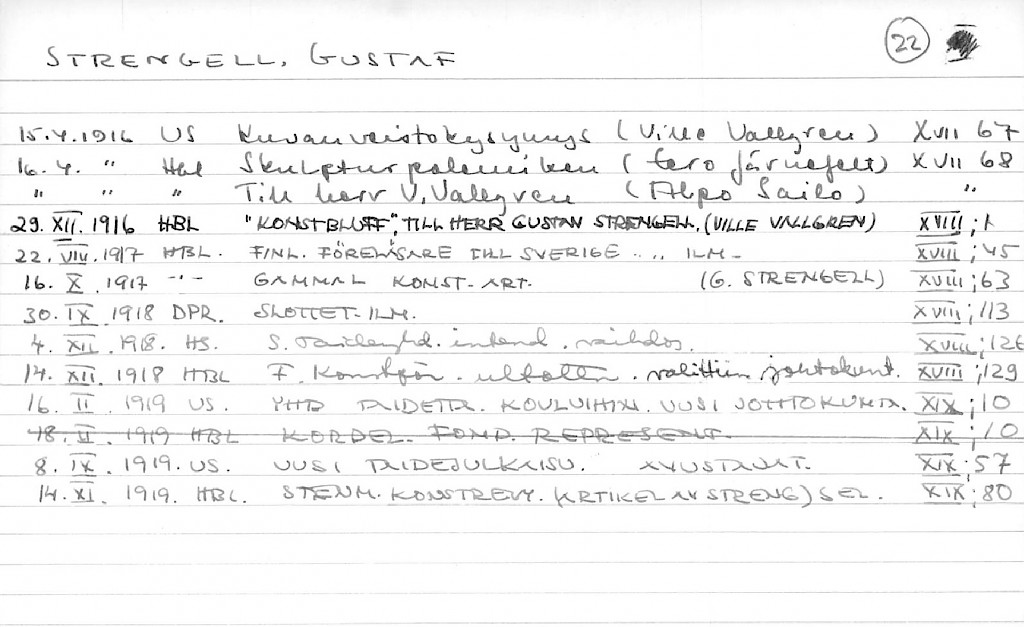 22
STRENGELL, GUSTAF
15.4.1916 US Kuvanveistokysymys (Ville Vallgren) XVII 67
16.4. " Hbl Skulpturpolemiken (Eero Järnefelt) XVII 68
" " " Till herr V. Vallgren (Alpo Sailo) "
29. XII. 1916 HBL "KONSTBLUFF", TILL HERR GUSTAV STRENGELL. (VILLE VALLGREN) XVIII; 1
22. 1917 HBL. FINL. FÖRELÄSARE TILL SVERIGE ... ILM- XVIII; 45
16. X. 1917 -"- GAMMAL KONST-ART. (G. STRENGELL) XVIII; 63
30. IX 1918 DPR. SLOTTET-ILM. XVIII; 113
4. XII. 1918. HS. S. intend. vaihdos. XVIII; 126
14. XII. 1918 HBL F. Konstför. valittiin johtokunt. XVIII; 129
16. II. 1919 US. YHD TAIDETTA. KOULUIHIN. UUSI JOHTOKUNTA. XIX; 10
18. II. 1919 HBL KORDEL. FOND. REPRESENT. XIX; 10
8. IX. 1919. US. UUSI TAIDEJULKAISU. XIX; 57
14. XI. 1919. HBL. STENM. KONSTREVY. (ARTIKEL AV STRENG) SEL. XIX; 80